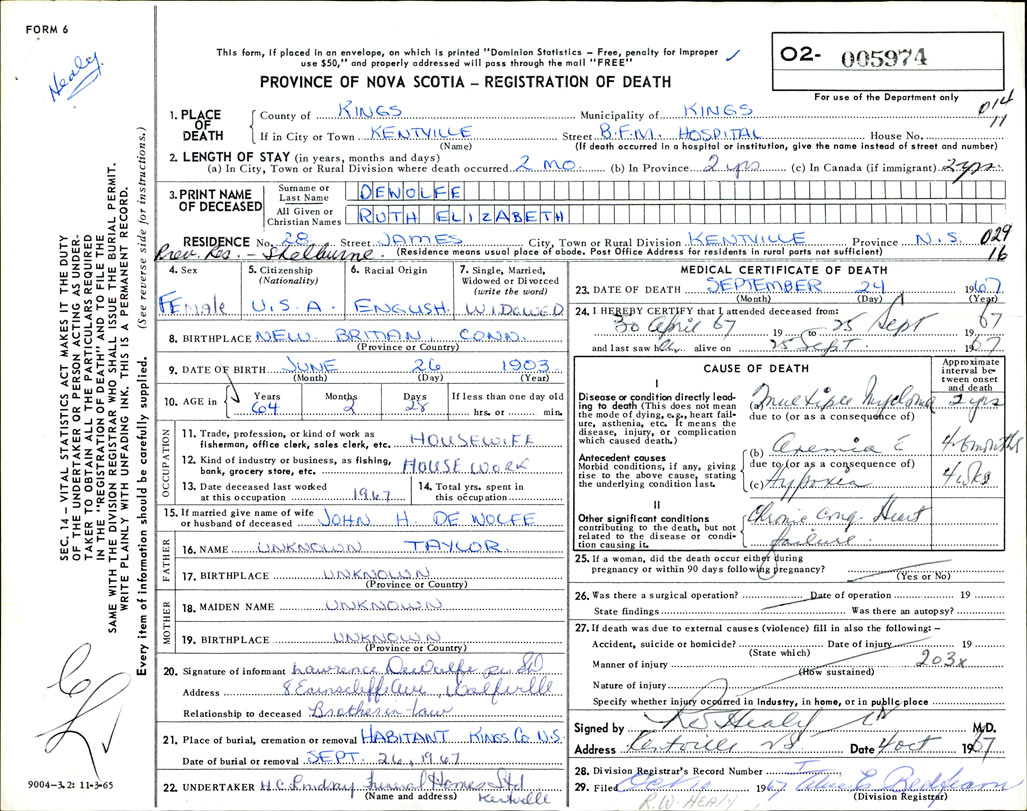 FORM 6
Healy
This form, if placed in an envelope, on which is printed "Dominion Statistics – Free, penalty for improper
use $50," and properly addressed will pass through the mail "FREE"
PROVINCE OF NOVA SCOTIA – REGISTRATION OF DEATH
O2- 005974
For use of the Department only
014
11
1. PLACE OF DEATH
County of KINGS Municipality of KINGS
If in City or Town KENTVILLE Street B.F.M. HOSPITAL House No.
(Name) (If death occurred in a hospital or institution, give the name instead of street and number)
2. LENGTH OF STAY (in years, months and days)
(a) In City, Town or Rural Division where death occurred 2 mo. (b) In Province 2 yrs (c) In Canada (if immigrant) 2 yrs.
3. PRINT NAME OF DECEASED
Surname or Last Name DEWOLFE
All Given or Christian Names RUTH ELIZABETH
RESIDENCE No. 28 Street JAMES City, Town or Rural Division KENTVILLE Province N.S.
029
16
Prev. Res. – Shelburne. (Residence means usual place of abode. Post Office Address for residents in rural parts not sufficient)
4. Sex Female
5. Citizenship (Nationality) U.S.A.
6. Racial Origin ENGLISH
7. Single, Married, Widowed or Divorced (write the word) WIDOWED
8. BIRTHPLACE NEW BRITIAN CONN.
(Province or Country)
9. DATE OF BIRTH JUNE 26 1903
(Month) (Day) (Year)
10. AGE in Years 64 Months 2 Days 28 If less than one day old hrs. or min.
OCCUPATION
11. Trade, profession, or kind of work as
fisherman, office clerk, sales clerk, etc. HOUSEWIFE
12. Kind of industry or business, as fishing,
bank, grocery store, etc. HOUSE WORK
13. Date deceased last worked
at this occupation 1967
14. Total yrs. spent in
this occupation
15. If married give name of wife
or husband of deceased JOHN H. DE WOLFE
FATHER
16. NAME UNKNOWN TAYLOR.
17. BIRTHPLACE UNKNOWN
(Province or Country)
MOTHER
18. MAIDEN NAME UNKNOWN
19. BIRTHPLACE UNKNOWN
(Province or Country)
20. Signature of informant Lawrence DeWolfe
Address 8 Earnscliffe Ave, Wolfville
Relationship to deceased Brother in Law
21. Place of burial, cremation or removal HABITANT KINGS CO. N.S.
Date of burial or removal SEPT. 26, 1967
22. UNDERTAKER H.C. Lindsay Funeral Homes Ltd
(Name and address) Kentville
MEDICAL CERTIFICATE OF DEATH
23. DATE OF DEATH SEPTEMBER 24 1967
(Month) (Day) (Year)
24. I HEREBY CERTIFY that I attended deceased from:
30 April 67 19 to 25 Sept 1967
and last saw her alive on 25 Sept. 1967
CAUSE OF DEATH
Approximate interval between onset and death
I
Disease or condition directly leading to death (This does not mean the mode of dying, e.g., heart failure, asthenia, etc. It means the disease, injury, or complication which caused death.)
(a) Multiple Myeloma 2 yrs
due to (or as a consequence of)
Antecedent causes
Morbid conditions, if any, giving rise to the above cause, stating the underlying condition last.
(b) Anemia c̄ 4-6 months
due to (or as a consequence of)
(c) Hypoxia 4 wks
II
Other significant conditions
contributing to the death, but not related to the disease or condition causing it.
Chronic Cong. Heart
failure.
25. If a woman, did the death occur either during
pregnancy or within 90 days following pregnancy?
(Yes or No)
26. Was there a surgical operation? Date of operation 19
State findings Was there an autopsy?
27. If death was due to external causes (violence) fill in also the following: –
Accident, suicide or homicide? Date of injury 19
(State which)
203x
Manner of injury
(How sustained)
Nature of injury
Specify whether injury occurred in industry, in home, or in public place
Signed by R W Healy M.D.
Address Kentville NS Date 4 Oct 1967
28. Division Registrar's Record Number
29. Filed Oct 1967
(Division Registrar)
R.W. HEALY
SEC. 14 – VITAL STATISTICS ACT MAKES IT THE DUTY
OF THE UNDERTAKER OR PERSON ACTING AS UNDERTAKER TO OBTAIN ALL THE PARTICULARS REQUIRED
IN THE "REGISTRATION OF DEATH" AND TO FILE THE
SAME WITH THE DIVISION REGISTRAR WHO SHALL ISSUE THE BURIAL PERMIT.
WRITE PLAINLY WITH UNFADING INK. THIS IS A PERMANENT RECORD.
Every item of information should be carefully supplied. (See reverse side for instructions.)
9004–3.2: 11-3-65